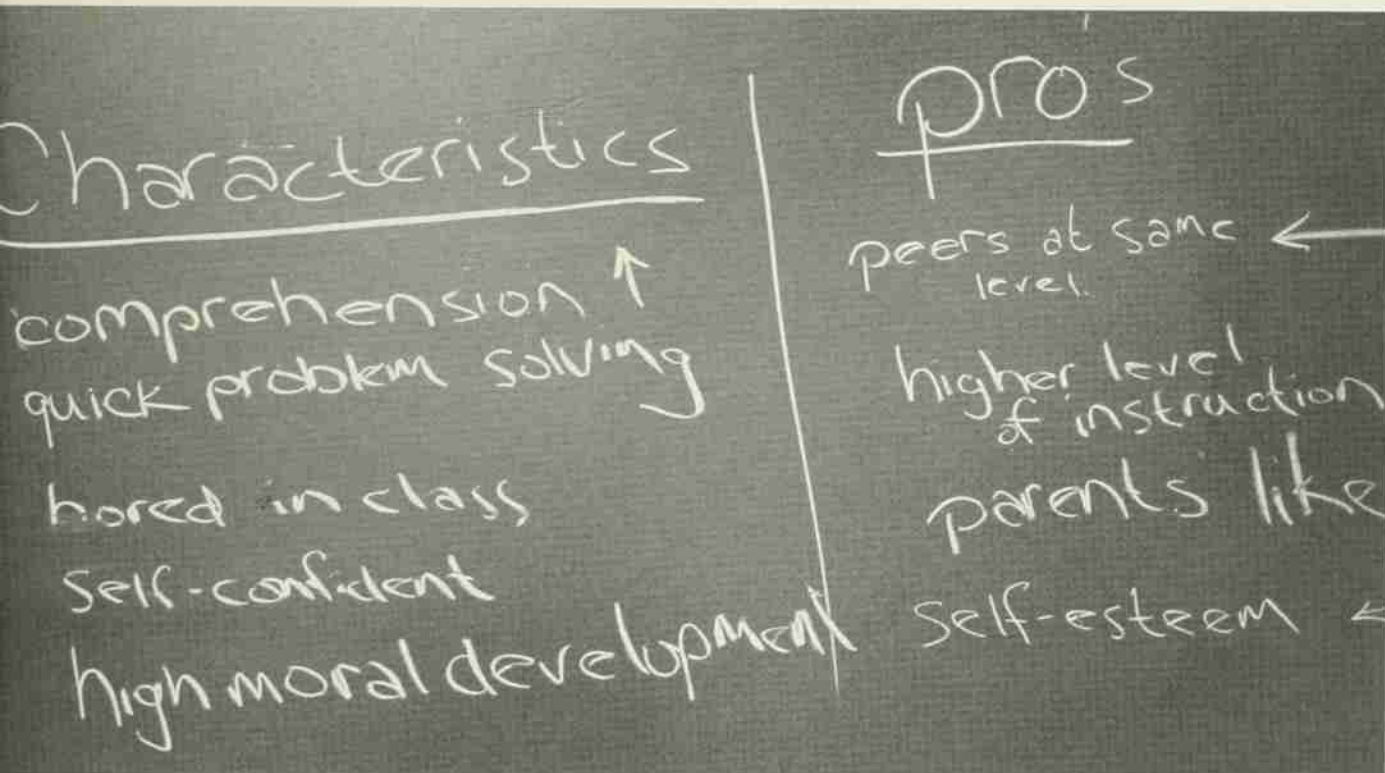 Characteristics
comprehension ↑
quick problem solving
bored in class
self-confident
high moral development
pro's
peers at same ←
level.
higher level
of instruction
parents like
self-esteem ←